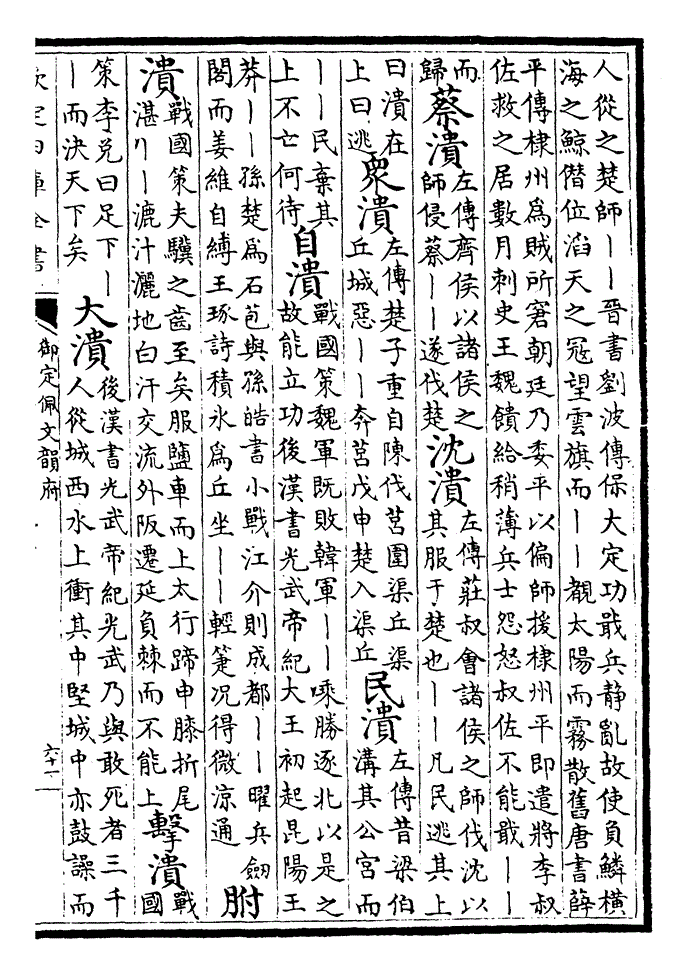 人從之楚師丨丨晉書劉波傳保大定功戢兵静亂故使負鱗橫
海之鯨僭位滔天之冦望雲旗而丨丨覩太陽而霧散舊唐書薛
平傳棣州爲賊所窘朝廷乃委平以偏師援棣州平即遣將李叔
佐救之居數月刺史王魏饋給稍薄兵士怨怒叔佐不能戢丨丨
而
歸
蔡潰
左傳齊侯以諸侯之
師侵蔡丨丨遂伐楚
沈潰
左傳莊叔會諸侯之師伐沈以
其服于楚也丨丨凡民逃其上
曰潰在
上曰逃
衆潰
左傳楚子重自陳伐莒圍渠丘渠
丘城惡丨丨奔莒戊申楚入渠丘
民潰
左傳昔梁伯
溝其公宮而
丨丨民棄其
上不亡何待
自潰
戰國策魏軍既敗韓軍丨丨乗勝逐北以是之
故能立功後漢書光武帝紀大王初起昆陽王
莽丨丨孫楚爲石苞與孫皓書小戰江介則成都丨丨曜兵劒
閣而姜維自縛王琢詩積氷爲丘坐丨丨輕箑况得微涼通
胕
潰
戰國策夫驥之齒至矣服鹽車而上太行蹄申膝折尾
湛丨丨漉汁灑地白汗交流外阪遷延負棘而不能上
擊潰
戰
國
策李兑曰足下丨
丨而決天下矣
大潰
後漢書光武帝紀光武乃與敢死者三千
人從城西水上衝其中堅城中亦鼓譟而
欽定四庫全書
御定佩文韻府
六十一